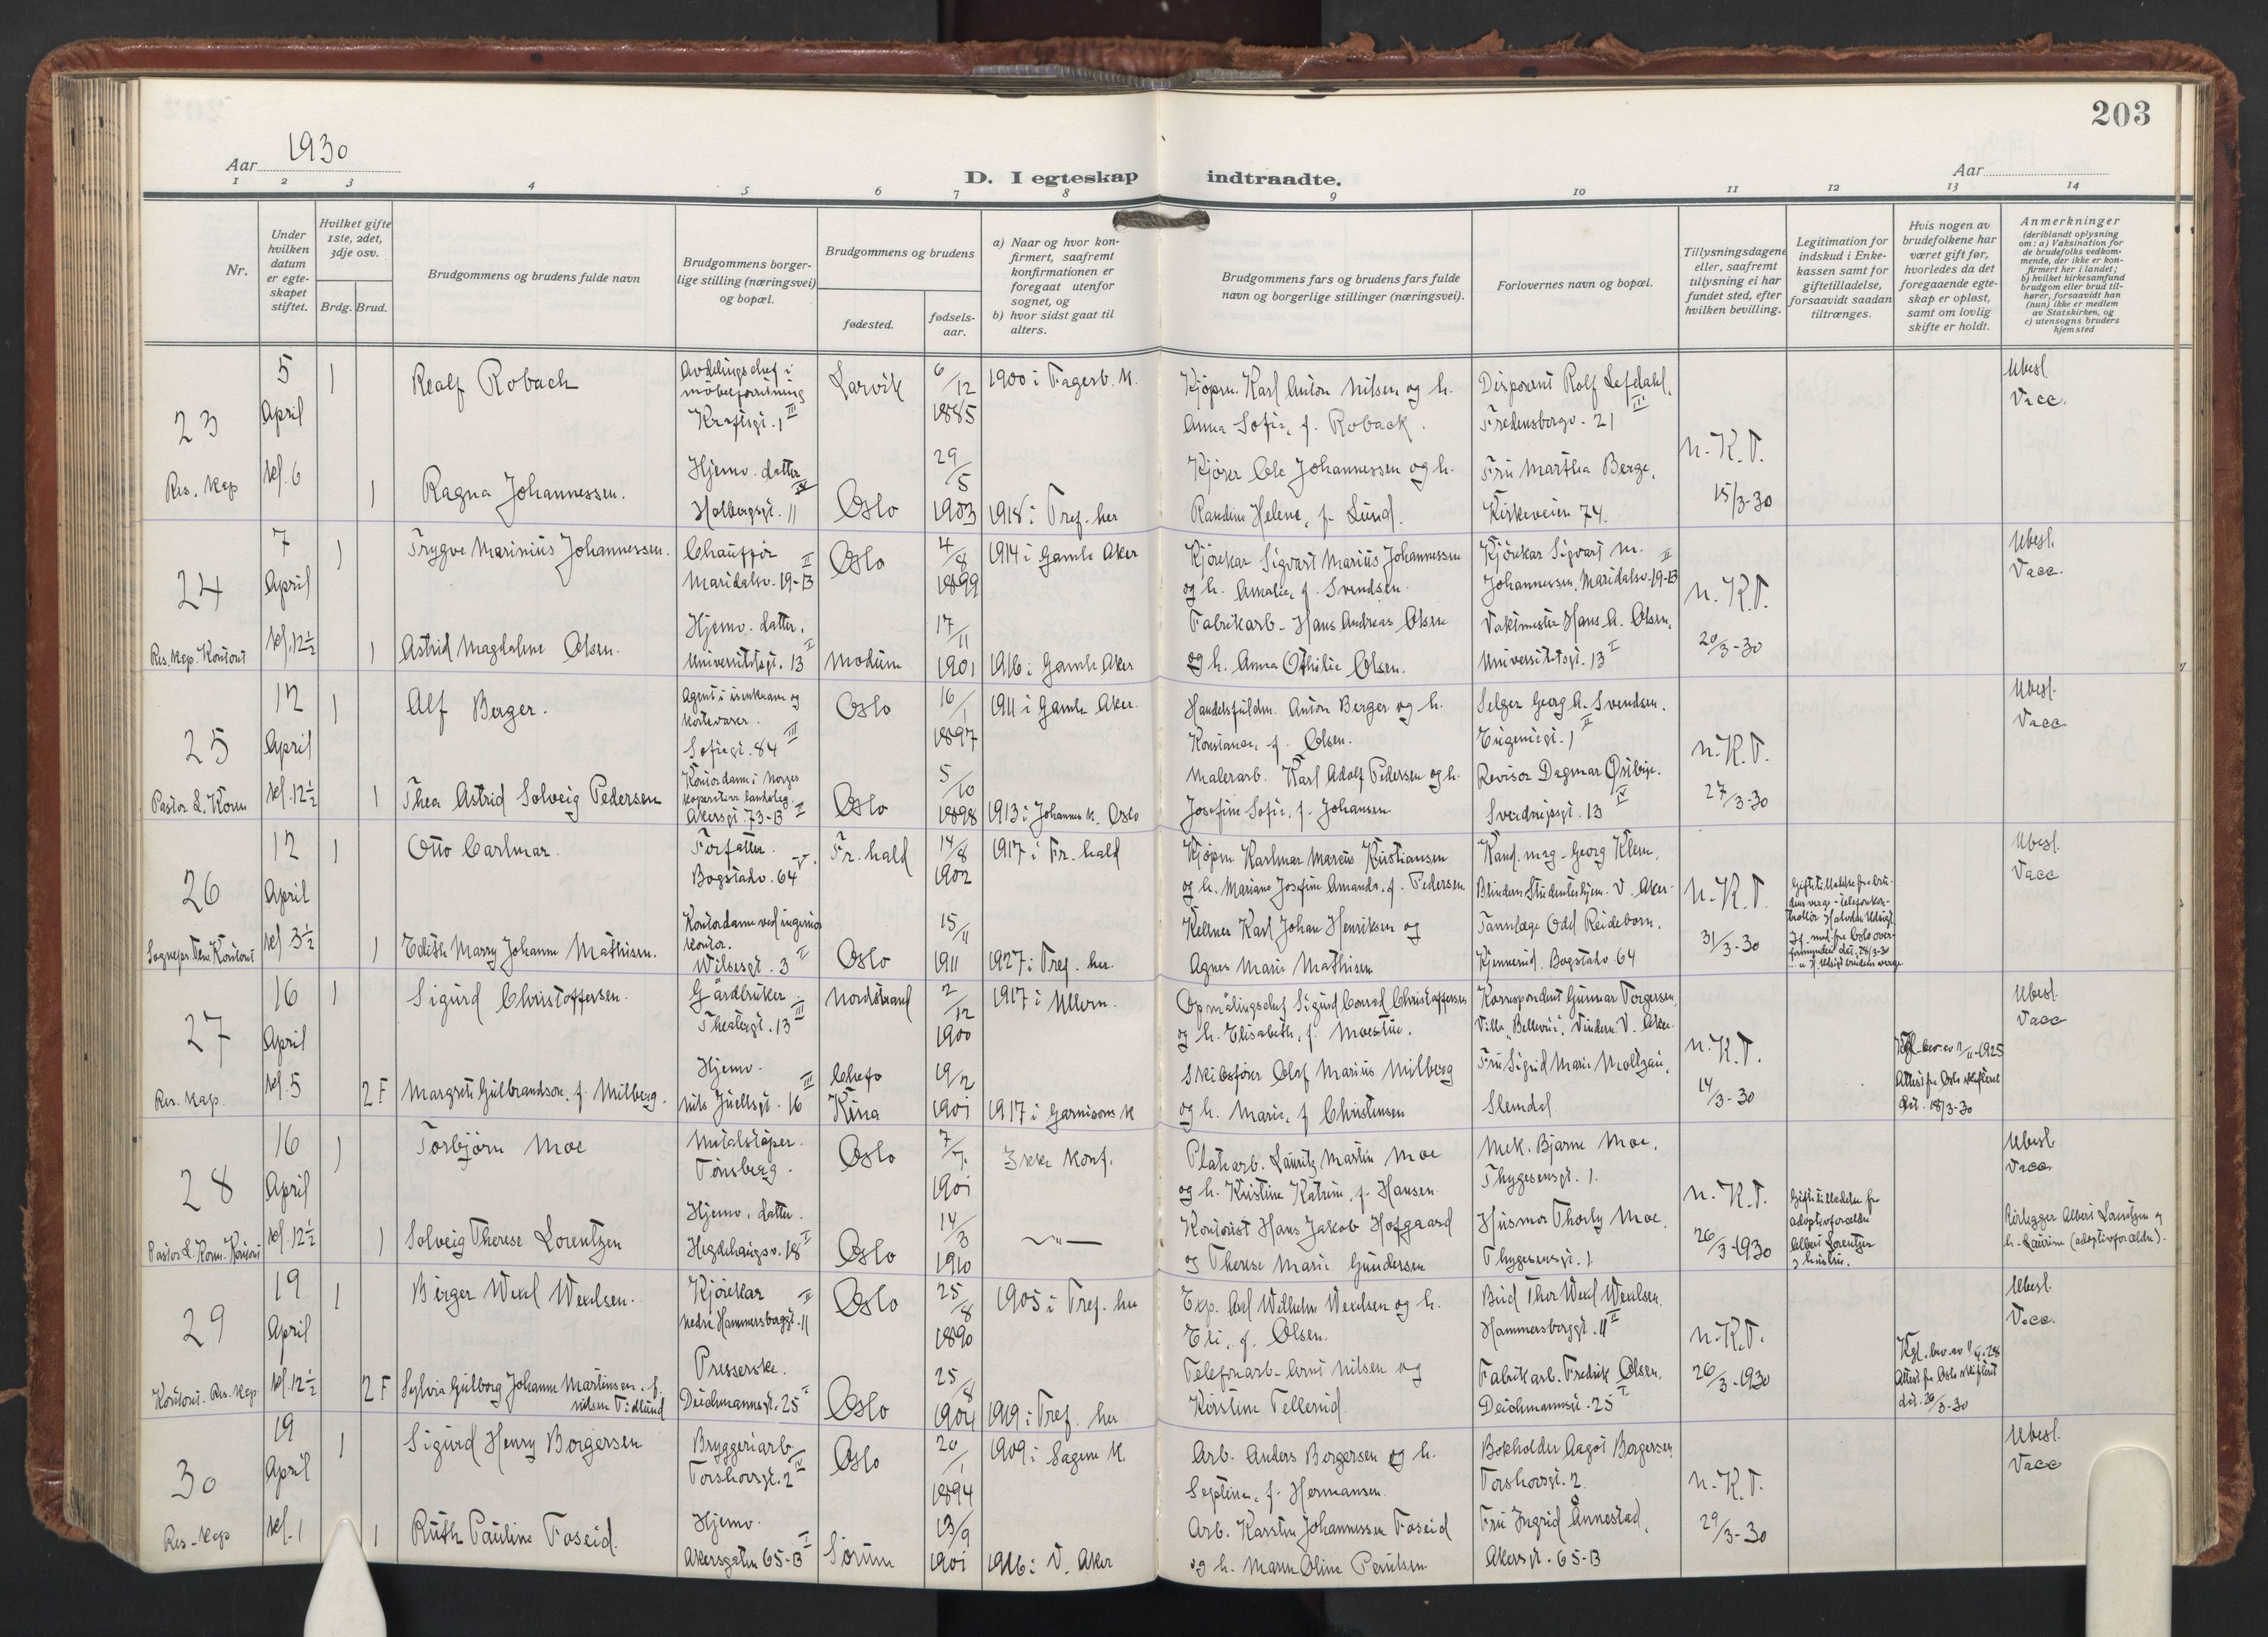 203
Aar 1930
D. I egteskap indtraadte.
Aar
1 2 3 4 5 6 7 8 9 10 11 12 13 14
Nr.
Under hvilken datum er egte-skapet stiftet.
Hvilket gifte 1ste, 2det, 3dje osv.
Brdg. Brud.
Brudgommens og brudens fulde navn
Brudgommens borger-lige stilling (næringsvei) og bopæl.
Brudgommens og brudens
fødested.
fødsels-aar.
a) Naar og hvor kon-firmert, saafremt konfirmationen er foregaat utenfor sognet, og
b) hvor sidst gaat til alters.
Brudgommens fars og brudens fars fulde navn og borgerlige stillinger (næringsvei).
Forlovernes navn og bopæl.
Tillysningsdagene eller, saafremt tillysning ei har fundet sted, efter hvilken bevilling.
Legitimation for indskud i Enke-kassen samt for giftetilladelse, forsaavidt saadan tiltrænges.
Hvis nogen av brudefolkene har været gift før, hvorledes da det foregaaende egte-skap er opløst, samt om lovlig skifte er holdt.
Anmerkninger
(deriblandt oplysning om: a) Vaksination for de brudefolks vedkom-mende, der ikke er kon-firmert her i landet; b) hvilket kirkesamfund brudgom eller brud til-hører, forsaavidt han (hun) ikke er medlem av Statskirken, og c) utensogns bruders hjemsted
23 Res. Kap
5 April kl. 6
1 Realf Roback
Avdelingschef i møbelforretning Kraftsgt. 1 III
Larvik 6/12 1885
1900 i Fagerb. K.
Kjøpm. Karl Anton Nilsen og h. Anna Sofie, f. Roback.
Disponent Rolf Lefdahl, Fredensborgv. 21 III
Ubesl. Vacc.
1 Ragna Johannessen.
Hjemv. datter Holbergsgt. 11 IV
Oslo 29/5 1903
1918 i Tref. her
Kjører Ole Johannessen og h. Randine Helene, f. Lund.
Fru Martha Berge, Kirkeveien 74.
N.K.T. 15/3-30
24 Res. Kap. Kontoret
7 April kl. 12½
1 Trygve Marinius Johannessen.
Chauffør Maridalsv. 19-B II
Oslo 4/8 1899
1914 i Gamle Aker
Kjørekar Sigvart Marius Johannessen og h. Amalie, f. Svendsen.
Kjørekar Sigvart M. Johannessen, Maridalsv. 19-B II
Ubesl. Vacc.
1 Astrid Magdalene Olsen.
Hjemv. datter. Universitetsgt. 13 I
Modum 17/11 1901
1916 i Gamle Aker
Fabrikarb. Hans Andreas Olsen og h. Anna Othilie Olsen.
Vaktmester Hans A. Olsen, Universitetsgt. 13 I
N.K.T. 20/3-30
25 Pastor L. Korm
12 April kl. 12½
1 Alf Berger.
Agent i isenkram og kortevarer. Sofiegt. 84 III
Oslo 16/1 1897
1911 i Gamle Aker.
Handelsfuldm. Anton Berger og h. Konstance, f. Olsen.
Selger Georg A. Svendsen, Eugeniegt. 1 II
Ubesl. Vacc
1 Thea Astrid Solveig Pedersen
Kontordame i Norges kooperative landsleg. Akersgt. 73-B II
Oslo 5/10 1898
1913 i Johannes K. Oslo
Malerarb. Karl Adolf Pedersen og h. Josefine Sofie, f. Johansen
Revisor Dagmar Østbye, Sverdrupsgt. 13 IV
N.K.T. 27/3-30
26 Kontoret
12 April kl. 3½
1 Otto Carlmar.
Forfatter. Bogstadv. 64 V.
Fr. hald 14/8 1902
1917 i Fr. hald
Kjøpm Karlmar Marius Kristiansen og h. Mariane Josefine Amanda, f. Pedersen
Kand. mag. Georg Klem, Blindern Studenterhjem. V. Aker.
Ubesl. Vacc
1 Edith Marry Johanne Mathisen.
Kontordame ved ingeniør kontor. Wilsesgt. 3 II
Oslo 15/11 1911
1927 i Tref. her.
Kellner Karl Johan Henriksen og Agnes Marie Mathisen
Tannlæge Odd Reideborn, Bogstadv 64
N.K.T. 31/3-30
Giftetilladelse fra brudens verge
27 Res. Kap.
16 April kl. 5
1 Sigurd Christoffersen.
Gårdbruker Theatergt. 13 III
Nordstrand 2/12 1900
1917 i Ullern.
Opmålingschef Sigurd Conrad Christoffersen og h. Elisabeth, f. Moestue.
Korrespondent Gunnar Torgersen, Villa "Bellevue", Vindern. V. Aker
Ubesl. Vacc
2 F Margrete Gulbrandson, f. Milberg.
Hjemv. Nils Juellsgt. 16 III
Chefo Kina 19/2 1901
1917 i Garnisons K
Skibsfører Olaf Marius Milberg og h. Marie, f. Christensen
Fru Sigrid Marie Moltzau, Slemdal
N.K.T. 14/3-30
Attest fra Oslo skifteret dat. 18/3-30
28 Pastor L. Korm. Kontoret
16 April kl. 12½
1 Torbjørn Moe
Metalstøper. Tønsberg.
Oslo 7/7. 1901
Ikke konf.
Platearb. Lauritz Martin Moe og h. Kristine Katrine, f. Hansen
Mek. Bjarne Moe, Thygesensgt. 1.
Ubesl. Vacc.
1 Solveig Therese Lorentzen
Hjemv. datter. Hegdehaugsv. 18 I
Oslo 14/3 1910
— " —
Kontorist Hans Jakob Hofgaard og Therese Marie Gundersen
Husmor Thorly Moe, Thygesensgt. 1.
N.K.T. 26/3-1930
Giftetilladelse fra adoptivforældre Albert Lorentzen og hustru.
Rørlegger Albert Lorentzen og h. Laurine (adoptivforældre).
29 Kontoret. Res. Kap.
19 April kl. 12½
1 Birger Wexel Wexelsen.
Kjørekar Nedre Hammersborggt. 11 II
Oslo 25/8 1890
1905 i Tref. her
Exp. Axel Wilhelm Wexelsen og h. Eli, f. Olsen.
Bud Thor Wexel Wexelsen, Hammersborggt. 11 II
Ubesl. Vacc.
2 F Sylvia Gulborg Johanne Martinsen, f. Nilsen Tidlund
Presserske. Deichmannsgt. 25 I
Oslo 25/8 1904
1919 i Tref. her
Telefonarb. Arnt Nilsen og Kirstine Tellerud.
Fabrikarb. Fredrik Olsen, Deichmannsgt. 25 I
N.K.T. 26/3-1930
Attest fra Oslo skifteret dat. 20/3-30
30 Res. Kap
19 April kl. 1
1 Sigurd Henry Borgersen
Bryggeriarb. Torshovsgt. 2 IV
Oslo 20/1 1894
1909 i Sagene K.
Arb. Anders Borgersen og h. Sepline, f. Hermansen.
Bokholder Aagot Borgersen, Torshovsgt. 2.
Ubesl. Vacc
1 Ruth Pauline Foseid.
Hjemv. Akersgaten 65-B I
Sørum 13/9 1901
1916 i V. Aker
Arb. Karsten Johannessen Foseid og h. Maren Oline Paulsen
Fru Ingrid Ånnestad, Akersgt. 65-B
N.K.T. 29/3-30